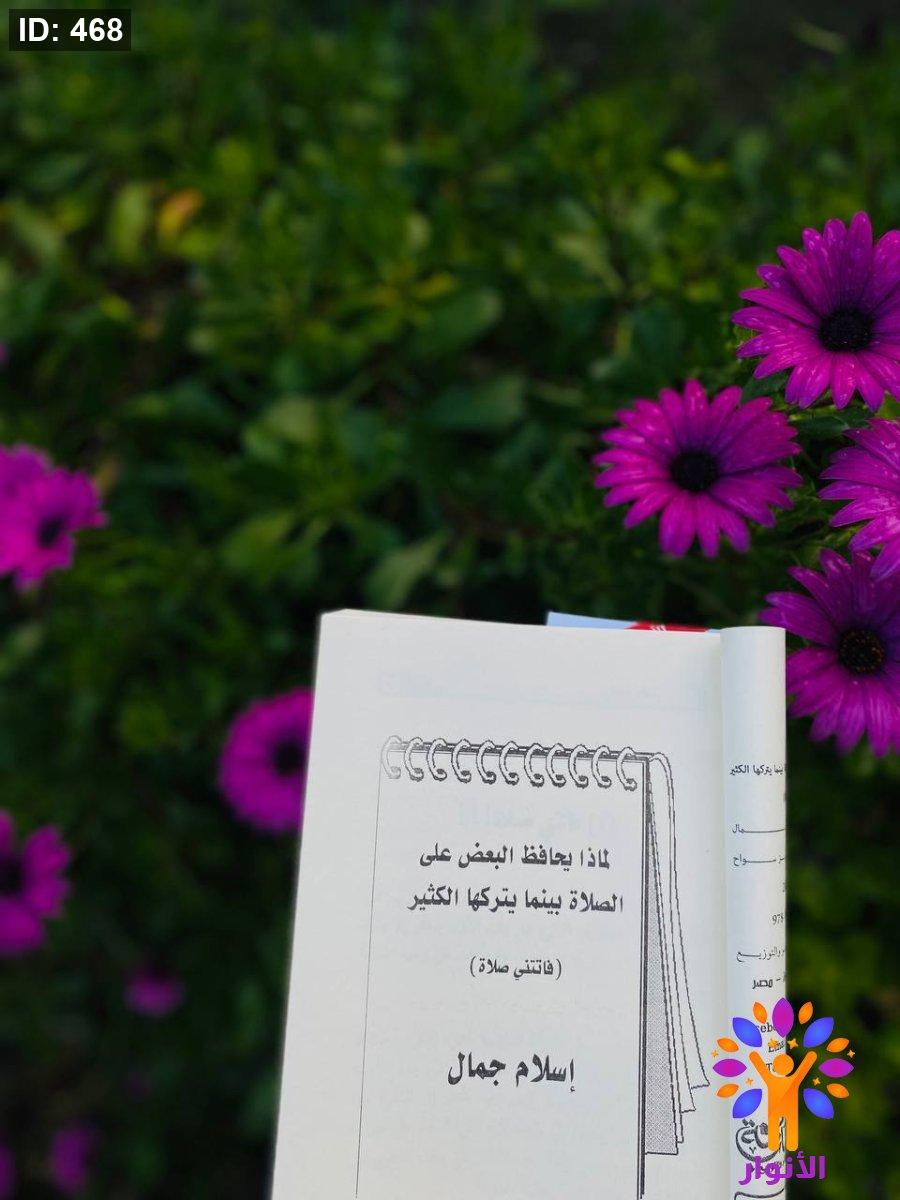 ID: 468
لماذا يحافظ البعض على
الصلاة بينما يتركها الكثير
(فاتتني صلاة)
إسلام جمال
بينما يتركها الكثير
ـمال
ـواح
978
والتوزيـع
- مصر
الأنوار